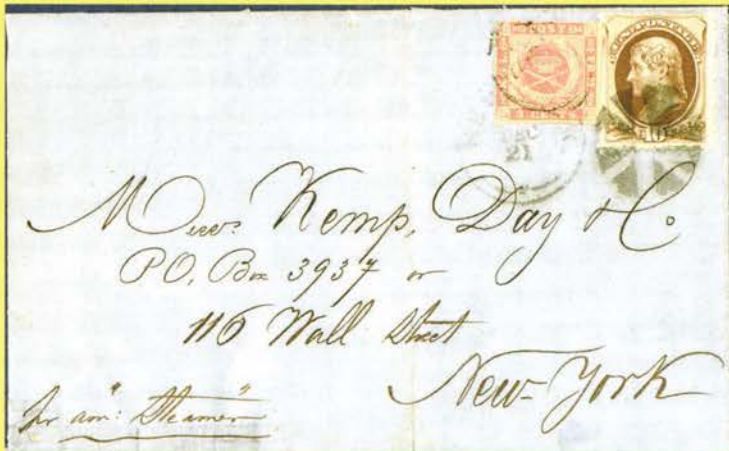 DEC
21
Messrs. Kemp, Day & Co
P.O. Box 3937 or
116 Wall Street
New-York
pr am: "Steamer"